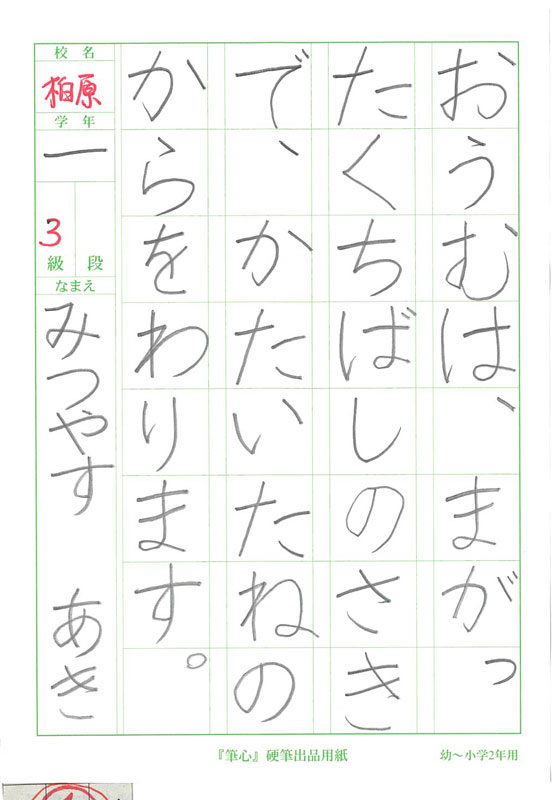 おうむは、まがっ
たくちばしのさき
で、かたいたねの
からをわります。
校名
柏原
学年
一
3
級段
なまえ
みつやす あき
『筆心』硬筆出品用紙
幼～小学2年用